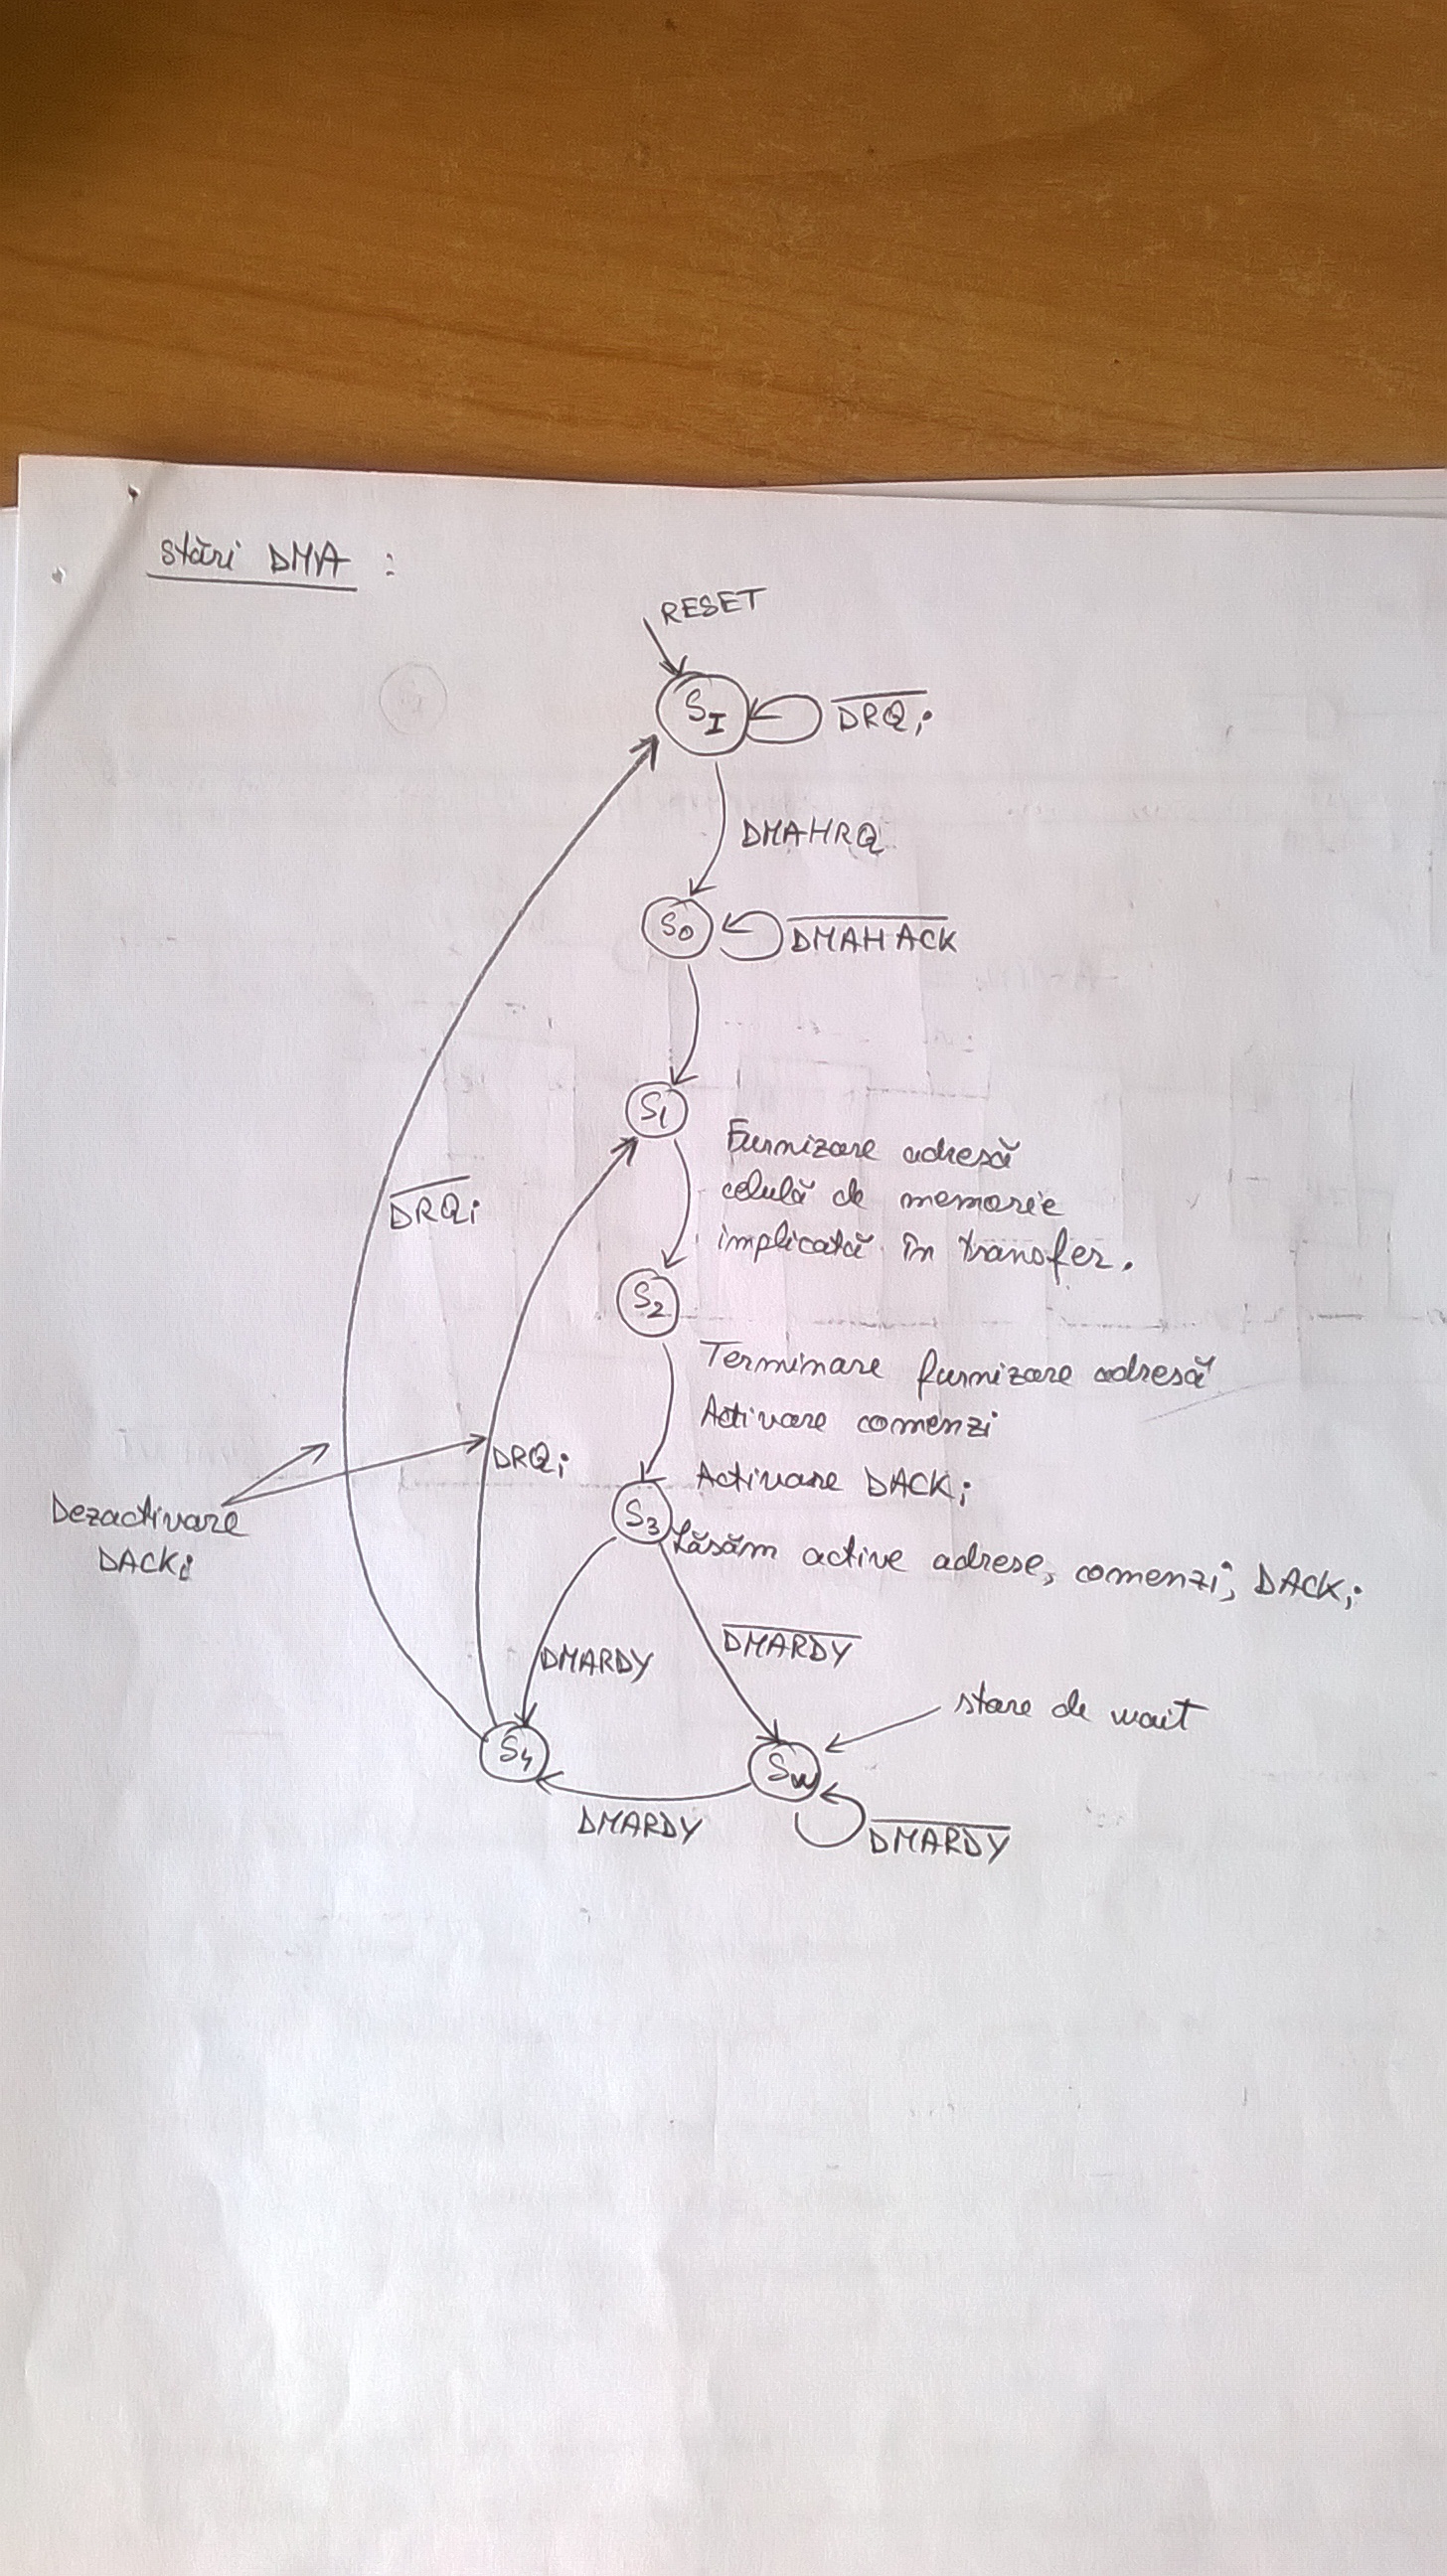 stări DMA :
RESET
S_I
D̅R̅Q̅i̅
DMAHRQ
S0
D̅M̅A̅H̅A̅C̅K̅
S1
Furnizare adresă
celulă de memorie
implicată în transfer.
D̅R̅Q̅i̅
S2
Terminare furnizare adresă
Activare comenzi
DRQi
Activare DACKi
Dezactivare
DACKi
S3
Lăsăm active adrese, comenzi, DACKi
DMARDY
D̅M̅A̅R̅D̅Y̅
stare de wait
S4
Sw
DMARDY
D̅M̅A̅R̅D̅Y̅